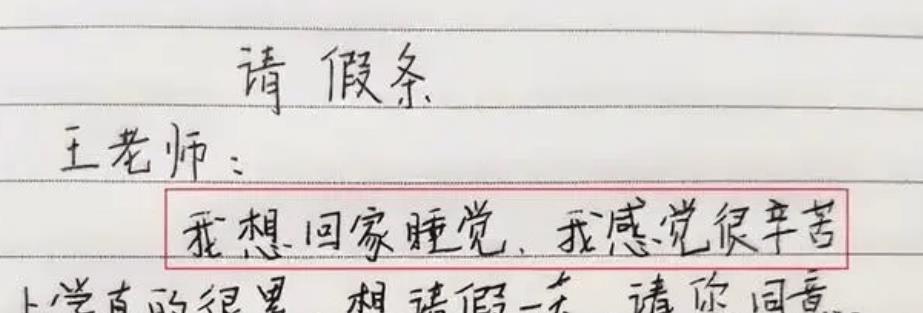 请假条
王老师：
我想回家睡觉，我感觉很辛苦
上学真的很累，想请假一天，请你同意。